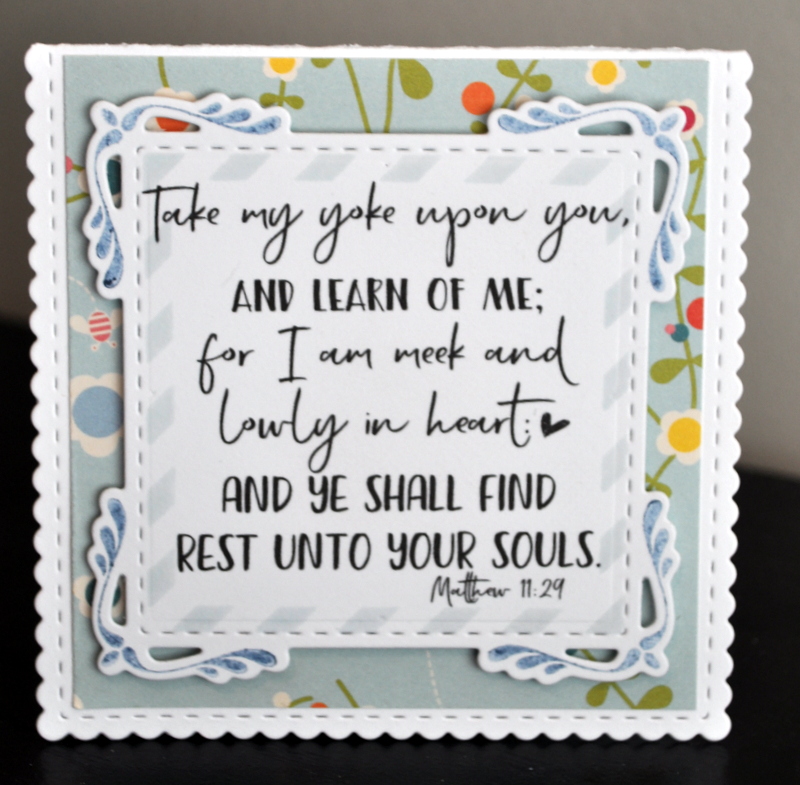 Take my yoke upon you,
AND LEARN OF ME;
for I am meek and
lowly in heart:
AND YE SHALL FIND
REST UNTO YOUR SOULS.
Matthew 11:29